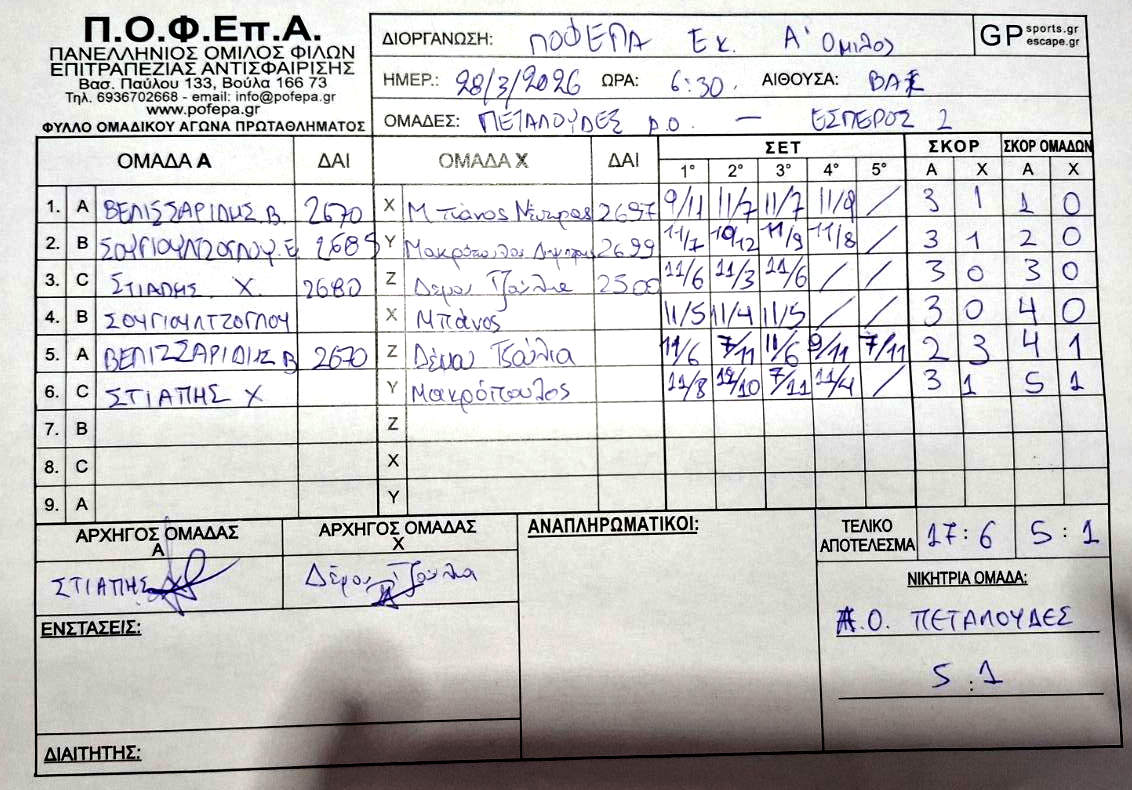 Π.Ο.Φ.Επ.Α.
ΠΑΝΕΛΛΗΝΙΟΣ ΟΜΙΛΟΣ ΦΙΛΩΝ
ΕΠΙΤΡΑΠΕΖΙΑΣ ΑΝΤΙΣΦΑΙΡΙΣΗΣ
Βασ. Παύλου 133, Βούλα 166 73
Τηλ. 6936702668 - email: info@pofepa.gr
www.pofepa.gr
ΦΥΛΛΟ ΟΜΑΔΙΚΟΥ ΑΓΩΝΑ ΠΡΩΤΑΘΛΗΜΑΤΟΣ
ΔΙΟΡΓΑΝΩΣΗ: ΠΟΦΕΠΑ Εκ. Α' Ομιλος
GP sports.gr escape.gr
ΗΜΕΡ.: 28/3/2026 ΩΡΑ: 6:30. ΑΙΘΟΥΣΑ:
ΟΜΑΔΕΣ: ΠΕΤΑΛΟΥΔΕΣ Α.Ο. — ΕΣΠΕΡΟΣ 2
ΟΜΑΔΑ Α ΔΑΙ ΟΜΑΔΑ Χ ΔΑΙ ΣΕΤ ΣΚΟΡ ΣΚΟΡ ΟΜΑΔΩΝ
1° 2° 3° 4° 5° Α Χ Α Χ
1. A ΒΕΛΙΣΣΑΡΙΔΗΣ Β. 2670 X Μπάνος 2697 9/11 11/7 11/7 11/9 / 3 1 1 0
2. B ΣΟΥΓΙΟΥΛΤΖΟΓΛΟΥ. Ε 2689 Y Μακρόπουλος Δημητρης 2699 11/7 10/12 11/9 11/8 / 3 1 2 0
3. C ΣΤΙΑΠΗΣ Χ. 2680 Z Δέμου Τζούλια 2500 11/6 11/3 11/6 / / 3 0 3 0
4. B ΣΟΥΓΙΟΥΛΤΖΟΓΛΟΥ X Μπάνος 11/5 11/4 11/5 / / 3 0 4 0
5. A ΒΕΛΙΣΣΑΡΙΔΗΣ Β 2670 Z Δέμου Τζούλια 11/6 7/11 11/6 9/11 7/11 2 3 4 1
6. C ΣΤΙΑΠΗΣ Χ Y Μακρόπουλος 11/8 12/10 7/11 11/4 / 3 1 5 1
7. B Z
8. C X
9. A Y
ΑΡΧΗΓΟΣ ΟΜΑΔΑΣ Α
ΣΤΙΑΠΗΣ
ΑΡΧΗΓΟΣ ΟΜΑΔΑΣ Χ
Δέμου Τζούλια
ΑΝΑΠΛΗΡΩΜΑΤΙΚΟΙ:
ΤΕΛΙΚΟ ΑΠΟΤΕΛΕΣΜΑ 17:6 5:1
ΝΙΚΗΤΡΙΑ ΟΜΑΔΑ:
Α.Ο. ΠΕΤΑΛΟΥΔΕΣ
5:1
ΕΝΣΤΑΣΕΙΣ:
ΔΙΑΙΤΗΤΗΣ: